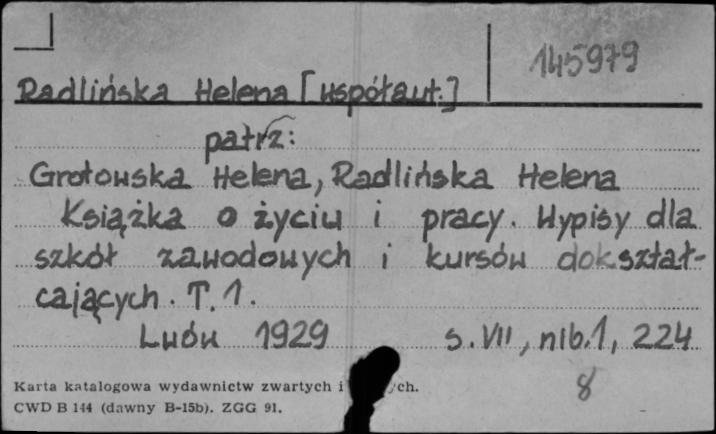 145979
Radlińska Helena [współaut.]
patrz:
Grotowska Helena, Radlińska Helena
Książka o życiu i pracy. Wypisy dla
szkół zawodowych i kursów dokształ-
cających. T. 1.
Lwów 1929 s. VII, nlb. 1, 224
8
Karta katalogowa wydawnictw zwartych i ch.
CWD B 144 (dawny B-15b). ZGG 91.